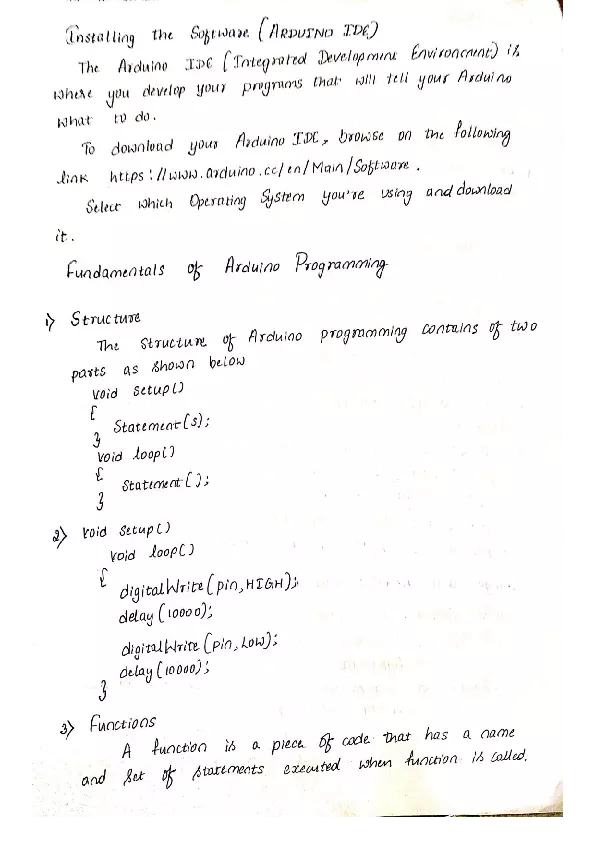 Installing the Software (ARDUINO IDE)
The Arduino IDE (Integrated Development Environment) is
where you develop your programs that will tell your Arduino
what to do.
To download your Arduino IDE, browse on the following
link https://www.arduino.cc/en/Main/Software.
Select which Operating System you're using and download
it.
Fundamentals of Arduino Programming
1) Structure
The structure of Arduino programming contains of two
parts as shown below
void setup()
{
Statement(s);
}
void loop()
{
Statement();
}
2) void setup()
void loop()
{
digitalWrite(pin,HIGH);
delay(10000);
digitalWrite(pin,LOW);
delay(10000);
}
3) Functions
A function is a piece of code that has a name
and set of statements executed when function is called.